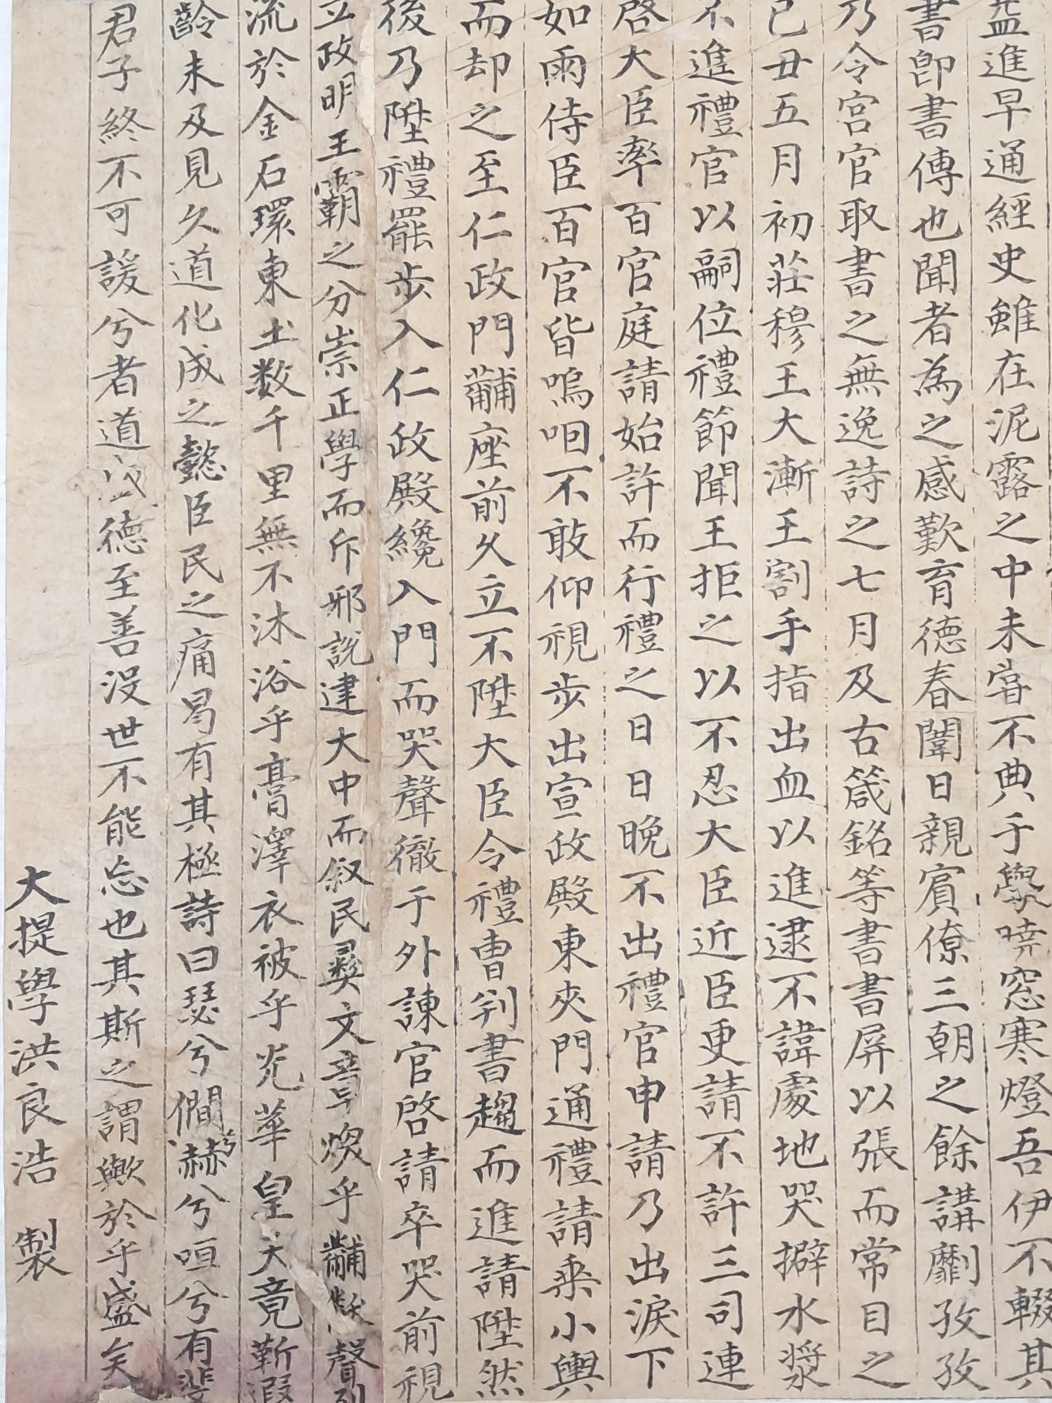 盖進早通經史雖在泥露之中未甞不典于學曉窓寒燈吾伊不輟其
書卽書傳也聞者為之感歎育德春闈日親賓僚三朝之餘講劘孜孜
乃令宮官取書之無逸詩之七月及古箴銘等書書屏以張而常目之
己丑五月初莊穆王大漸王割手指出血以進逮不諱處地哭擗水漿
不進禮官以嗣位禮節聞王拒之以不忍大臣近臣更請不許三司連
啓大臣率百官庭請始許而行禮之日日晚不出禮官申請乃出淚下
如雨侍臣百官皆嗚咽不敢仰視步出宣政殿東夾門通禮請乘小輿
而却之至仁政門黼座前久立不陞大臣令禮曹判書趨而進請陞然
後乃陞禮罷步入仁政殿纔入門而哭聲徹于外諫官啓請卒哭前視
立政明王霸之分崇正學而斥邪說建大中而叙民彛文章煥乎黼黻聲烈
流於金石環東土数千里無不沐浴乎膏澤衣被乎光華皇天竟靳遐
齡未及見久道化成之懿臣民之痛曷有其極詩曰瑟兮僩兮赫兮咺兮有斐
君子終不可諼兮者道盛德至善沒世不能忘也其斯之謂歟於乎盛矣
大提學洪良浩 製